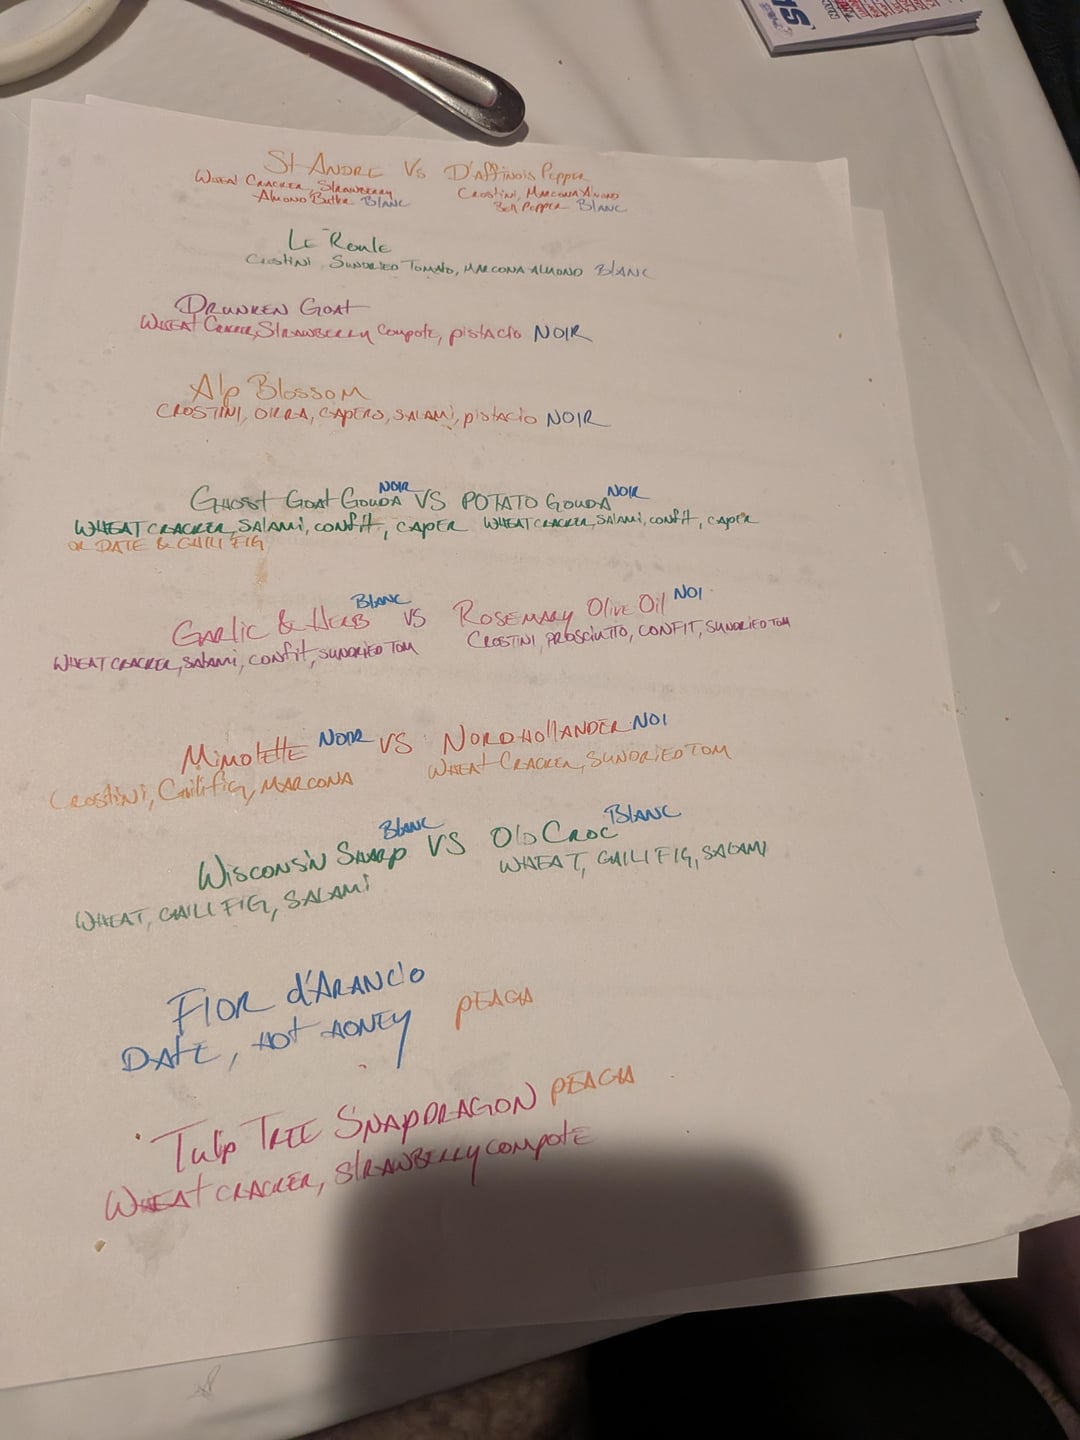 St Andre Vs D'Affinois Pepper
Wheat Cracker, Strawberry
Almond Butter Blanc
Crostini, Marcona Almond
Bell Pepper Blanc
Le Roule
Crostini, Sundried Tomato, Marcona Almond Blanc
Drunken Goat
Wheat Cracker, Strawberry Compote, pistacio NOIR
Alp Blossom
CROSTINI, ORRA, CAPERO, SALAMI, pistacio NOIR
Ghost Goat Gouda NOIR VS POTATO Gouda NOIR
WHEAT CRACKER, SALAMI, CONFIT, CAPER WHEAT CRACKER, SALAMI, CONFIT, CAPER
OR DATE & CHILI FIG
Garlic & Herb Blanc VS Rosemary Olive Oil NOI
WHEAT CRACKER, SALAMI, CONFIT, SUNDRIED TOM
CROSTINI, PROSCIUTTO, CONFIT, SUNDRIED TOM
Mimolette NOIR VS NORDHOLLANDER NOI
CROSTINI, Chilifig, MARCONA
WHEAT CRACKER, SUNDRIED TOM
Wisconsin Sharp Blanc VS Old Croc Blanc
WHEAT, CHILI FIG, SALAMI
WHEAT, CHILI FIG, SALAMI
FIOR d'ARANCIO
DATE, HOT HONEY PEACH
Tulip TREE SNAPDRAGON PEACH
WHEAT CRACKER, STRAWBERRY COMPOTE